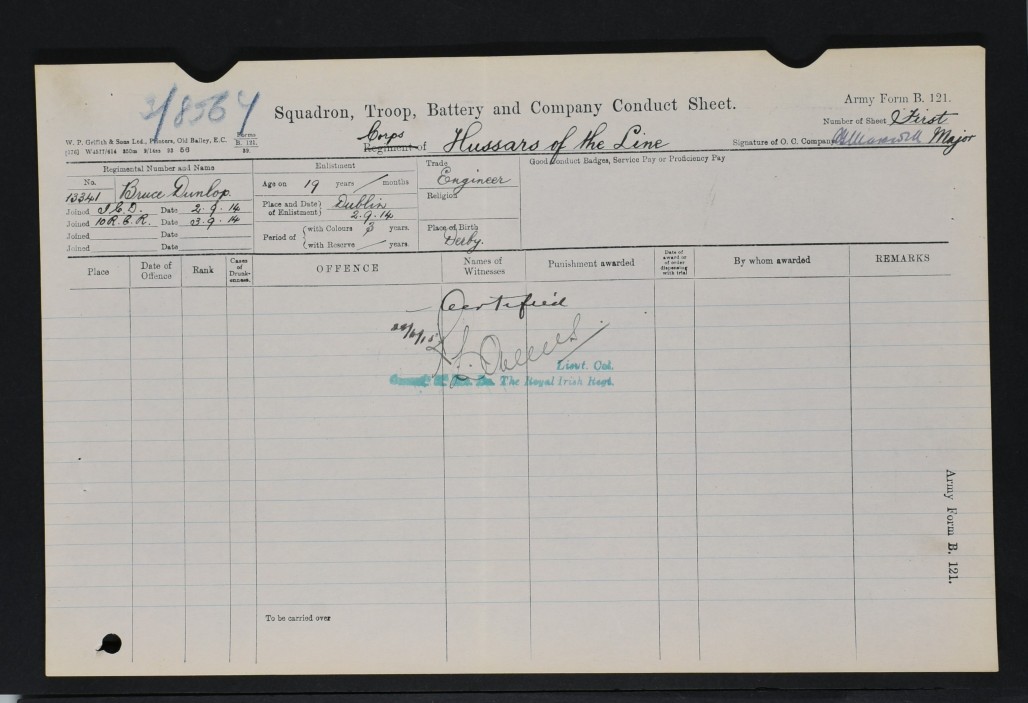 3/8564
Squadron, Troop, Battery and Company Conduct Sheet.
Army Form B. 121.
Number of Sheet First
W. P. Griffith & Sons Ltd., Printers, Old Bailey, E.C. Forms B. 121, 39.
Corps
Regiment of Hussars of the Line
Signature of O. C. Company Major
Regimental Number and Name
No.
13341 Bruce Dunlop.
Joined Date 2.9.14
Joined Date 3.9.14
Joined Date
Joined Date
Enlistment
Age on 19 years months
Place and Date of Enlistment) Dublin
2.9.14
Period of (with Colours years.
(with Reserve years.
Trade
Engineer
Religion
Place of Birth
Derby.
Good Conduct Badges, Service Pay or Proficiency Pay
Place
Date of Offence
Rank
Cases of Drunk-enness.
OFFENCE
Names of Witnesses
Punishment awarded
Date of award or of order dispensing with trial
By whom awarded
REMARKS
Certified
Lieut. Col.
The Royal Irish Regt.
To be carried over
Army Form B. 121.